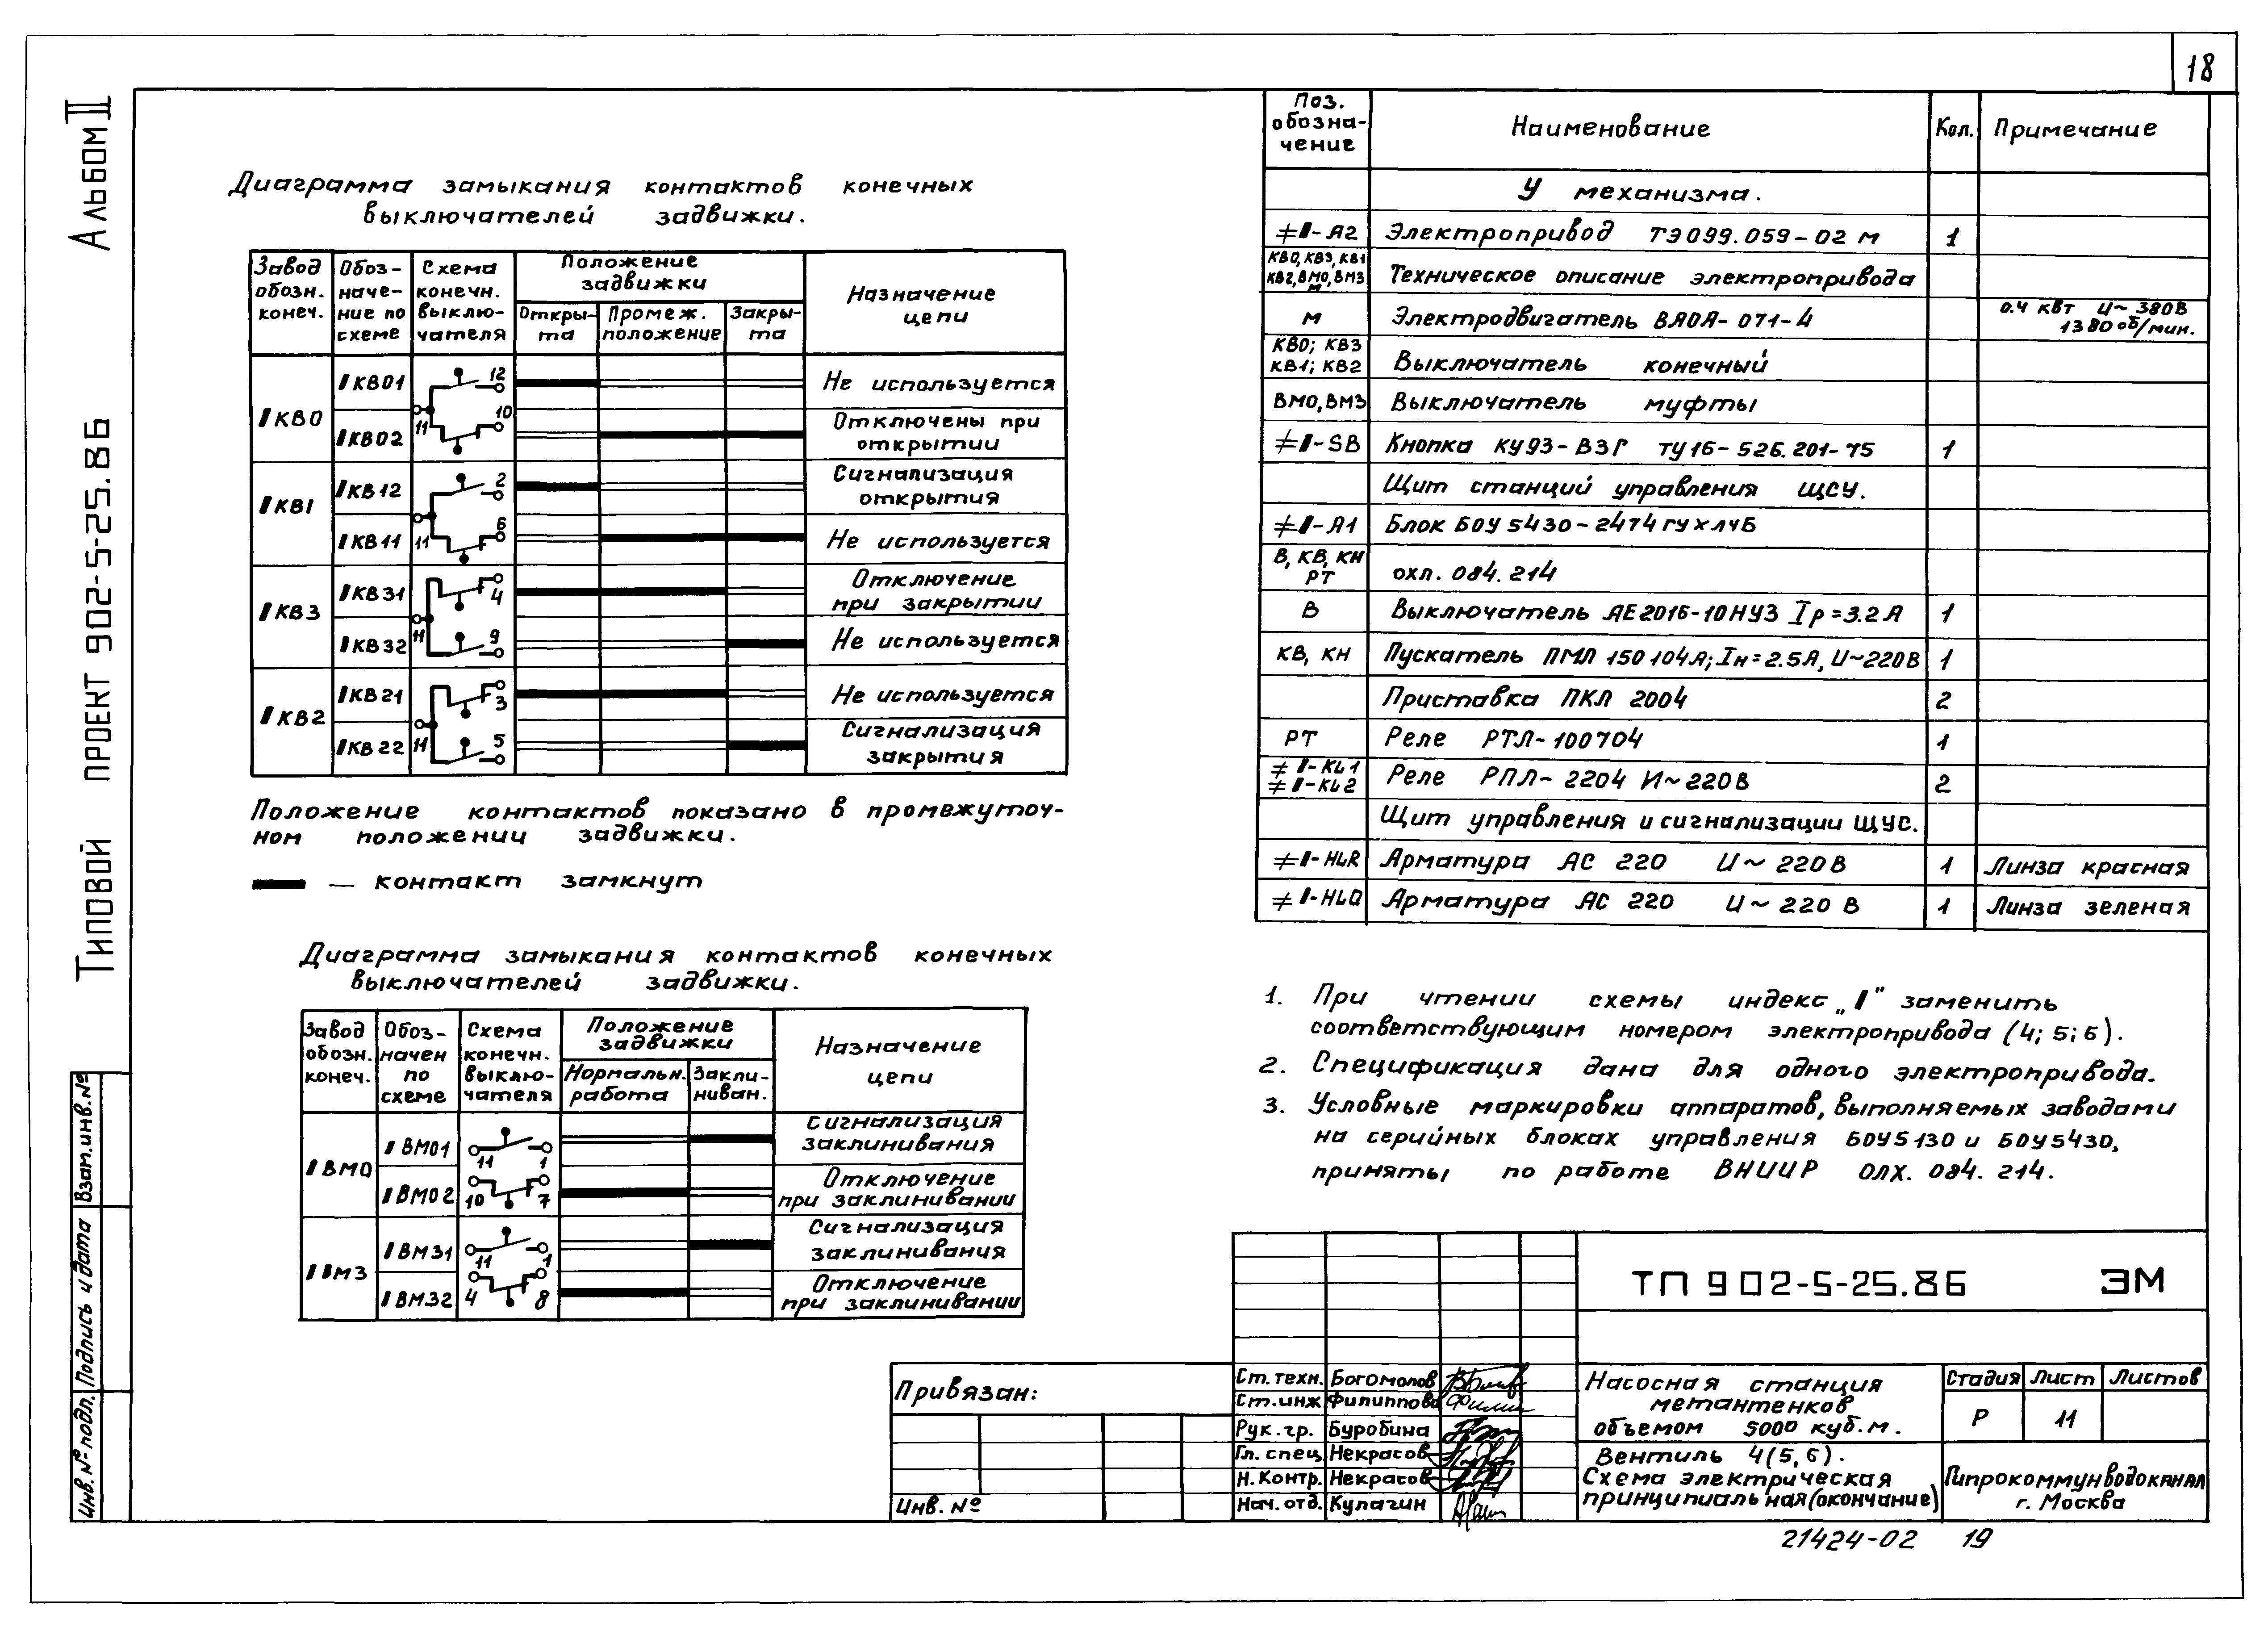 18
Альбом II
Типовой проект 902-5-25.86
Диаграмма замыкания контактов конечных
выключателей задвижки.
Завод обозн. конеч.
Обоз-
наче-
ние по
схеме
Схема
конечн.
выклю-
чателя
Положение
задвижки
Откры-
та
Промеж.
положение
Закры-
та
Назначение
цепи
I КВ0
I КВ01
12
Не используется
11
10
I КВ02
Отключены при
открытии
I КВ1
I КВ12
2
Сигнализация
открытия
11
6
I КВ11
Не используется
I КВ3
I КВ31
4
Отключение
при закрытии
11
9
I КВ32
Не используется
I КВ2
I КВ21
3
Не используется
11
5
I КВ22
Сигнализация
закрытия
Положение контактов показано в промежуточ-
ном положении задвижки.
— контакт замкнут
Диаграмма замыкания контактов конечных
выключателей задвижки.
Завод
обозн.
конеч.
Обоз-
начен
по
схеме
Схема
конечн.
выклю-
чателя
Положение
задвижки
Нормальн.
работа
Закли-
ниван.
Назначение
цепи
I ВМ0
I ВМ01
11 1
Сигнализация
заклинивания
I ВМ02
10 7
Отключение
при заклинивании
I ВМ3
I ВМ31
11 1
Сигнализация
заклинивания
I ВМ32
4 8
Отключение
при заклинивании
Поз.
обозна-
чение
Наименование
Кол.
Примечание
У механизма.
≠I-А2 Электропривод ТЭ099.059-02 м 1
КВ0, КВ3, КВ1
КВ2, ВМ0, ВМ3
М
Техническое описание электропривода
М Электродвигатель ВАОА-071-4
0.4 квт U~380В
1380 об/мин.
КВ0; КВ3
КВ1; КВ2
Выключатель конечный
ВМ0, ВМ3 Выключатель муфты
≠I-SB Кнопка КУ93-ВЗГ ТУ16-526.201-75 1
Щит станций управления ЩСУ.
≠I-А1 Блок БОУ5430-2474ГУХЛ4Б
В, КВ, КН
РТ
охл. 084.214
В Выключатель АЕ2016-10НУ3 Iр=3.2А 1
КВ, КН Пускатель ПМЛ 150104А; Iн=2.5А, U~220В 1
Приставка ПКЛ 2004 2
РТ Реле РТЛ-100704 1
≠I-KL1
≠I-KL2
Реле РПЛ-2204 И~220В 2
Щит управления и сигнализации ЩУС.
≠I-HLR Арматура АС 220 U~220В 1 Линза красная
≠I-HLQ Арматура АС 220 U~220 В 1 Линза зеленая
1. При чтении схемы индекс „I" заменить
соответствующим номером электропривода (4; 5; 6).
2. Спецификация дана для одного электропривода.
3. Условные маркировки аппаратов, выполняемых заводами
на серийных блоках управления БОУ5130 и БОУ5430,
приняты по работе ВНИИР ОЛХ. 084. 214.
ТП 902-5-25.86 ЭМ
Привязан:
Инв. №
Ст. техн. Богомолов
Ст. инж Филиппова
Рук. гр. Буробина
Гл. спец. Некрасов
Н. Контр. Некрасов
Нач. отд. Кулагин
Насосная станция
метантенков
объемом 5000 куб.м.
Стадия Лист Листов
Р 11
Вентиль 4(5,6).
Схема электрическая
принципиальная (окончание)
Гипрокоммунводоканал
г. Москва
21424-02 19
Взам. инв. №
Подпись и дата
Инв. № подл.